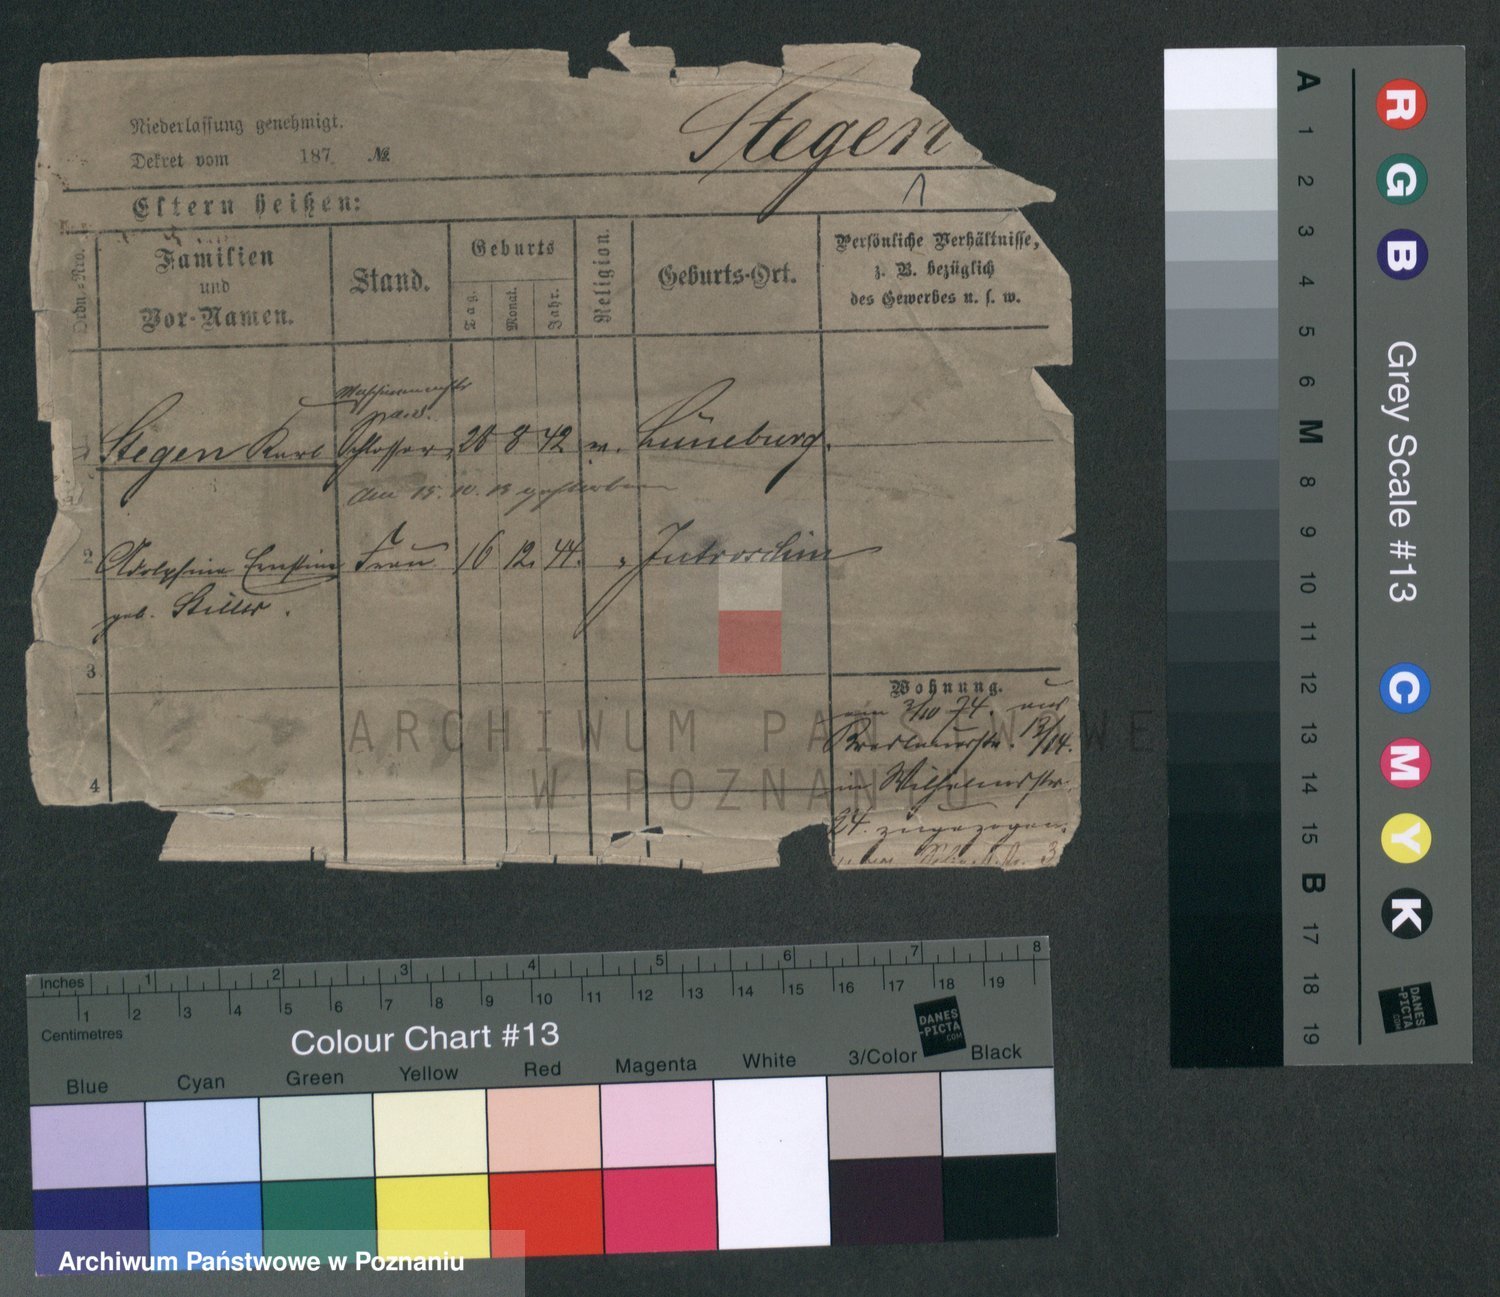 Stegen
Niederlassung genehmigt.
Dekret vom 187 №
Eltern heißen:
Ordn.-Nro.
Familien
und
Vor-Namen.
Stand.
Geburts
Tag.
Monat.
Jahr.
Religion.
Geburts-Ort.
Persönliche Verhältnisse,
z. B. bezüglich
des Gewerbes u. s. w.
1 Stegen Karl Schlosser, 28 8 42 Lüneburg.
am 15. 10. 13 gestorben
2 Adolphine Ernstine Frau 16 12. 44. " Jutroschin
geb. Stiller.
3
4
Wohnung.
am 3/10 74 aus
Breslauerstr. 13/14.
in Wilhelmstr.
24. zugezogen.
ARCHIWUM PAŃSTWOWE
W POZNANIU
Inches 1 2 3 4 5 6 7 8
1 2 3 4 5 6 7 8 9 10 11 12 13 14 15 16 17 18 19
Centimetres
Colour Chart #13
DANES
-PICTA
.COM
Blue Cyan Green Yellow Red Magenta White 3/Color Black
Archiwum Państwowe w Poznaniu
A 1 2 3 4 5 6 M 8 9 10 11 12 13 14 15 B 17 18 19
R G B Grey Scale #13 C M Y K
DANES
-PICTA
.COM